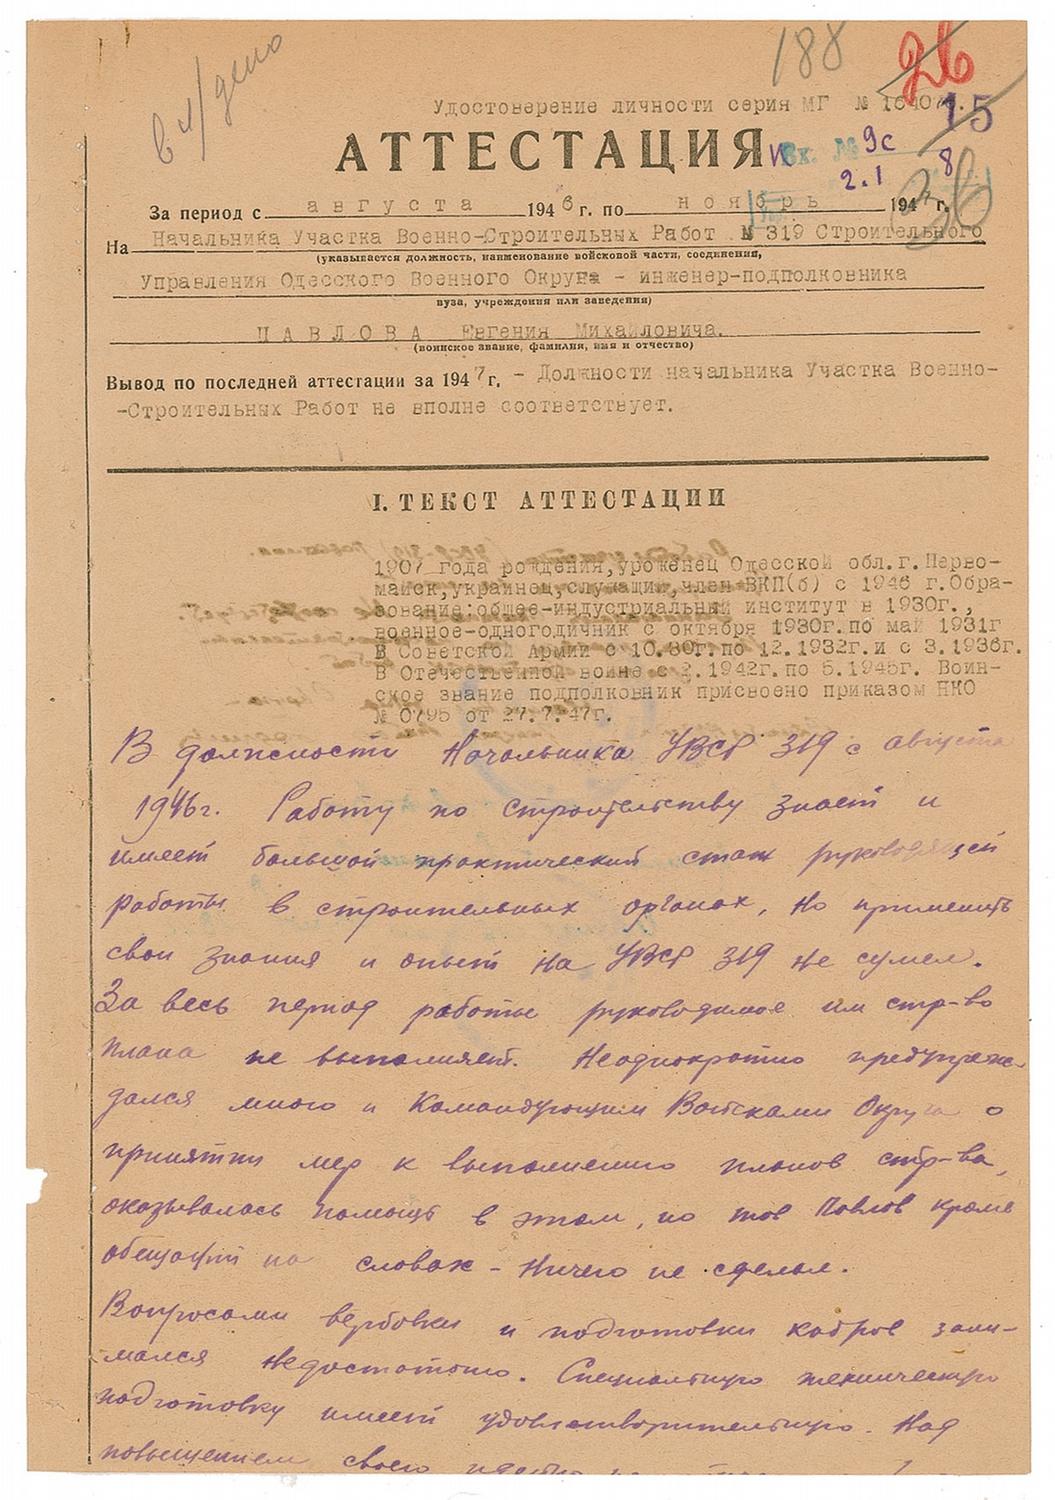 в л/дело
188
26
Удостоверение личности серия МГ №
15
АТТЕСТАЦИЯ
Вх. № 9с
8
2.1
За период с августа 1946 г. по ноябрь 1947 г.
На Начальника Участка Военно-Строительных Работ № 319 Строительного
(указывается должность, наименование войсковой части, соединения,
Управления Одесского Военного Округа – инженер-подполковника
вуза, учреждения или заведения)
ПАВЛОВА Евгения Михайловича.
(воинское звание, фамилия, имя и отчество)
Вывод по последней аттестации за 1947 г. – Должности начальника Участка Военно-
-Строительных Работ не вполне соответствует.
I. ТЕКСТ АТТЕСТАЦИИ
1907 года рождения, уроженец Одесской обл. г. Перво-
майск, украинец, служащий, член ВКП(б) с 1946 г. Обра-
зование: общее-индустриальный институт в 1930г.,
военное-одногодичник с октября 1930г. по май 1931г
В Советской Армии с 10.30г. по 12.1932г. и с 3.1936г.
В Отечественной войне с 2.1942г. по 5.1945г. Воин-
ское звание подполковник присвоено приказом НКО
№ 0795 от 27.7.47г.
В должности Начальника УВСР 319 с августа
1946г. Работу по строительству знает и
имеет большой практический стаж руководящей
работы в строительных органах, но применить
свои знания и опыт на УВСР 319 не сумел.
За весь период работы руководимое им стр-во
плана не выполняет. Неоднократно предупреж-
дался мною и Командующим Войсками Округа о
принятии мер к выполнению планов стр-ва,
оказывалась помощь в этом, но тов Павлов кроме
обещаний на словах – ничего не сделал.
Вопросами вербовки и подготовки кадров зани-
мался недостаточно. Специальную техническую
подготовку имеет удовлетворительную. Над
повышением своего